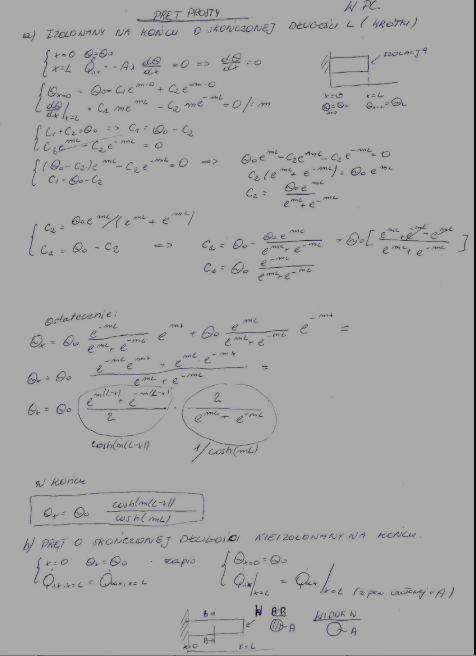 W PC.
PRĘT PROSTY
a) IZOLOWANY NA KOŃCU O SKOŃCZONEJ DŁUGOŚCI L (KRÓTKI)
x=0 Θ=Θ₀
x=L Q̇ₓ₌L = -Aλ dΘ/dx = 0 => dΘ/dx = 0
IZOLACJA
x=0 x=L
Θₓ₌₀ = Θ₀ = C₁e^(m·0) + C₂e^(-m·0)
dΘ/dx |ₓ₌L = C₁me^(mL) - C₂me^(-mL) = 0 /:m
C₁+C₂=Θ₀ => C₁=Θ₀-C₂
C₁e^(mL) - C₂e^(-mL) = 0
(Θ₀-C₂)e^(mL) - C₂e^(-mL) = 0 => Θ₀e^(mL) - C₂e^(mL) - C₂e^(-mL) = 0
C₁=Θ₀-C₂ C₂(e^(mL) + e^(-mL)) = Θ₀e^(mL)
C₂ = Θ₀e^(mL) / (e^(mL) + e^(-mL))
C₂ = Θ₀e^(mL)/(e^(mL) + e^(-mL))
C₁ = Θ₀ - C₂ => C₁ = Θ₀ - Θ₀e^(mL) / (e^(mL) + e^(-mL)) = Θ₀[(e^(mL) + e^(-mL) - e^(mL)) / (e^(mL) + e^(-mL))]
C₁ = Θ₀ e^(-mL) / (e^(mL) + e^(-mL))
ostatecznie:
Θₓ = Θ₀ e^(-mL) / (e^(mL) + e^(-mL)) e^(mx) + Θ₀ e^(mL) / (e^(mL) + e^(-mL)) e^(-mx) =
Θₓ = Θ₀ (e^(-mL)·e^(mx) + e^(mL)·e^(-mx)) / (e^(mL) + e^(-mL)) =
Θₓ = Θ₀ (e^(m(L-x)) + e^(-m(L-x))) / 2 · 2 / (e^(mL) + e^(-mL))
cosh(m(L-x)) 1/cosh(mL)
w końcu
Θₓ = Θ₀ cosh(m(L-x)) / cosh(mL)
b) PRĘT O SKOŃCZONEJ DŁUGOŚCI NIEIZOLOWANY NA KOŃCU.
x=0 Θₓ=Θ₀
Θₓ₌₀ = Θ₀
B-B WIDOK W
A A
x=0 x=L